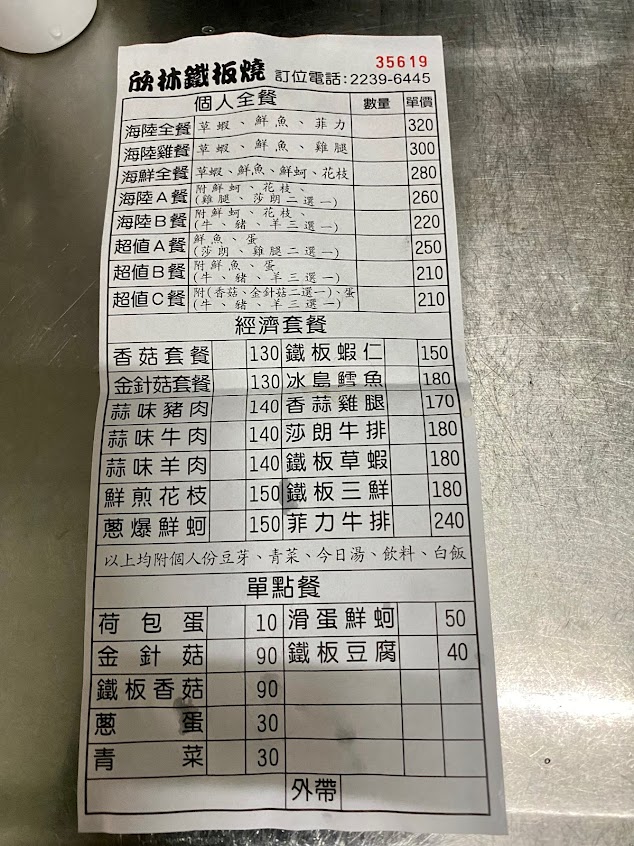 35619
欣林鐵板燒 訂位電話:2239-6445
個人全餐 數量 單價
海陸全餐 草蝦、鮮魚、菲力 320
海陸雞餐 草蝦、鮮魚、雞腿 300
海鮮全餐 草蝦、鮮魚、鮮蚵、花枝 280
海陸A餐 附鮮蚵、花枝、 260
(雞腿、莎朗二選一)
海陸B餐 附鮮蚵、花枝、 220
(牛、豬、羊三選一)
超值A餐 鮮魚、蛋 250
(莎朗、雞腿二選一)
超值B餐 附鮮魚、蛋 210
(牛、豬、羊三選一)
超值C餐 附(香菇、金針菇二選一)、蛋 210
(牛、豬、羊三選一)
經濟套餐
香菇套餐 130 鐵板蝦仁 150
金針菇套餐 130 冰島鱈魚 180
蒜味豬肉 140 香蒜雞腿 170
蒜味牛肉 140 莎朗牛排 180
蒜味羊肉 140 鐵板草蝦 180
鮮煎花枝 150 鐵板三鮮 180
蔥爆鮮蚵 150 菲力牛排 240
以上均附個人份豆芽、青菜、今日湯、飲料、白飯
單點餐
荷包蛋 10 滑蛋鮮蚵 50
金針菇 90 鐵板豆腐 40
鐵板香菇 90
蔥蛋 30
青菜 30
外帶